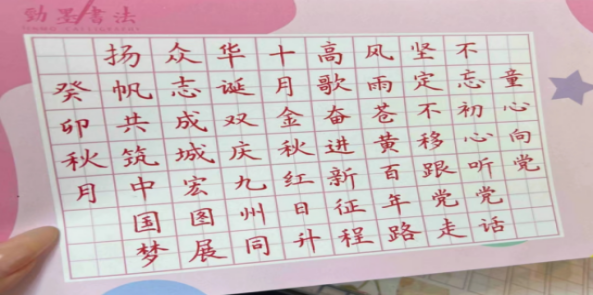 劲墨书法
童心向党
不忘初心听党话
坚定不移跟党走
风雨苍黄百年路
高歌奋进新征程
十月金秋红日升
华诞双庆九州同
众志成城宏图展
扬帆共筑中国梦
癸卯秋月